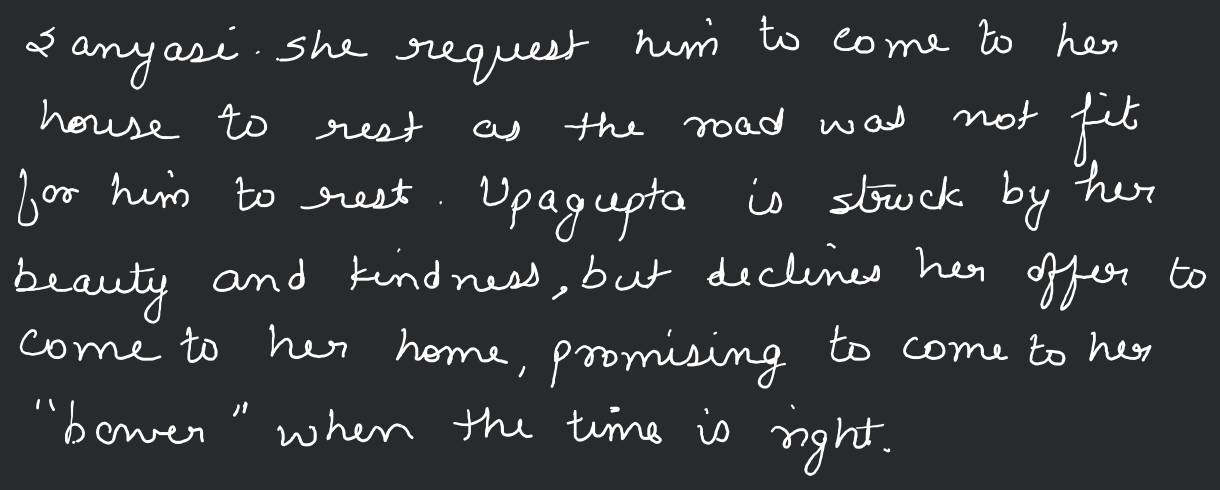 Sanyasi. She request him to come to her
house to rest as the road was not fit
for him to rest. Upagupta is struck by her
beauty and kindness, but declines her offer to
come to her home, promising to come to her
"bower" when the time is right.